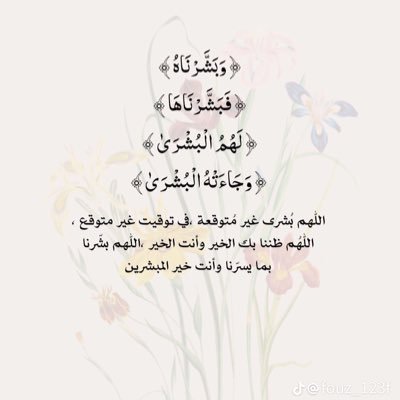 ﴿وَبَشَّرْنَاهُ﴾
﴿فَبَشَّرْنَاهَا﴾
﴿لَهُمُ الْبُشْرَىٰ﴾
﴿وَجَاءَتْهُ الْبُشْرَىٰ﴾
اللهم بُشرى غير مُتوقعة ،في توقيت غير متوقع ،
اللهُم ظننا بك الخير وأنت الخير ،اللهم بشّرنا
بما يسرّنا وأنت خير المبشرين
@fouz_123f